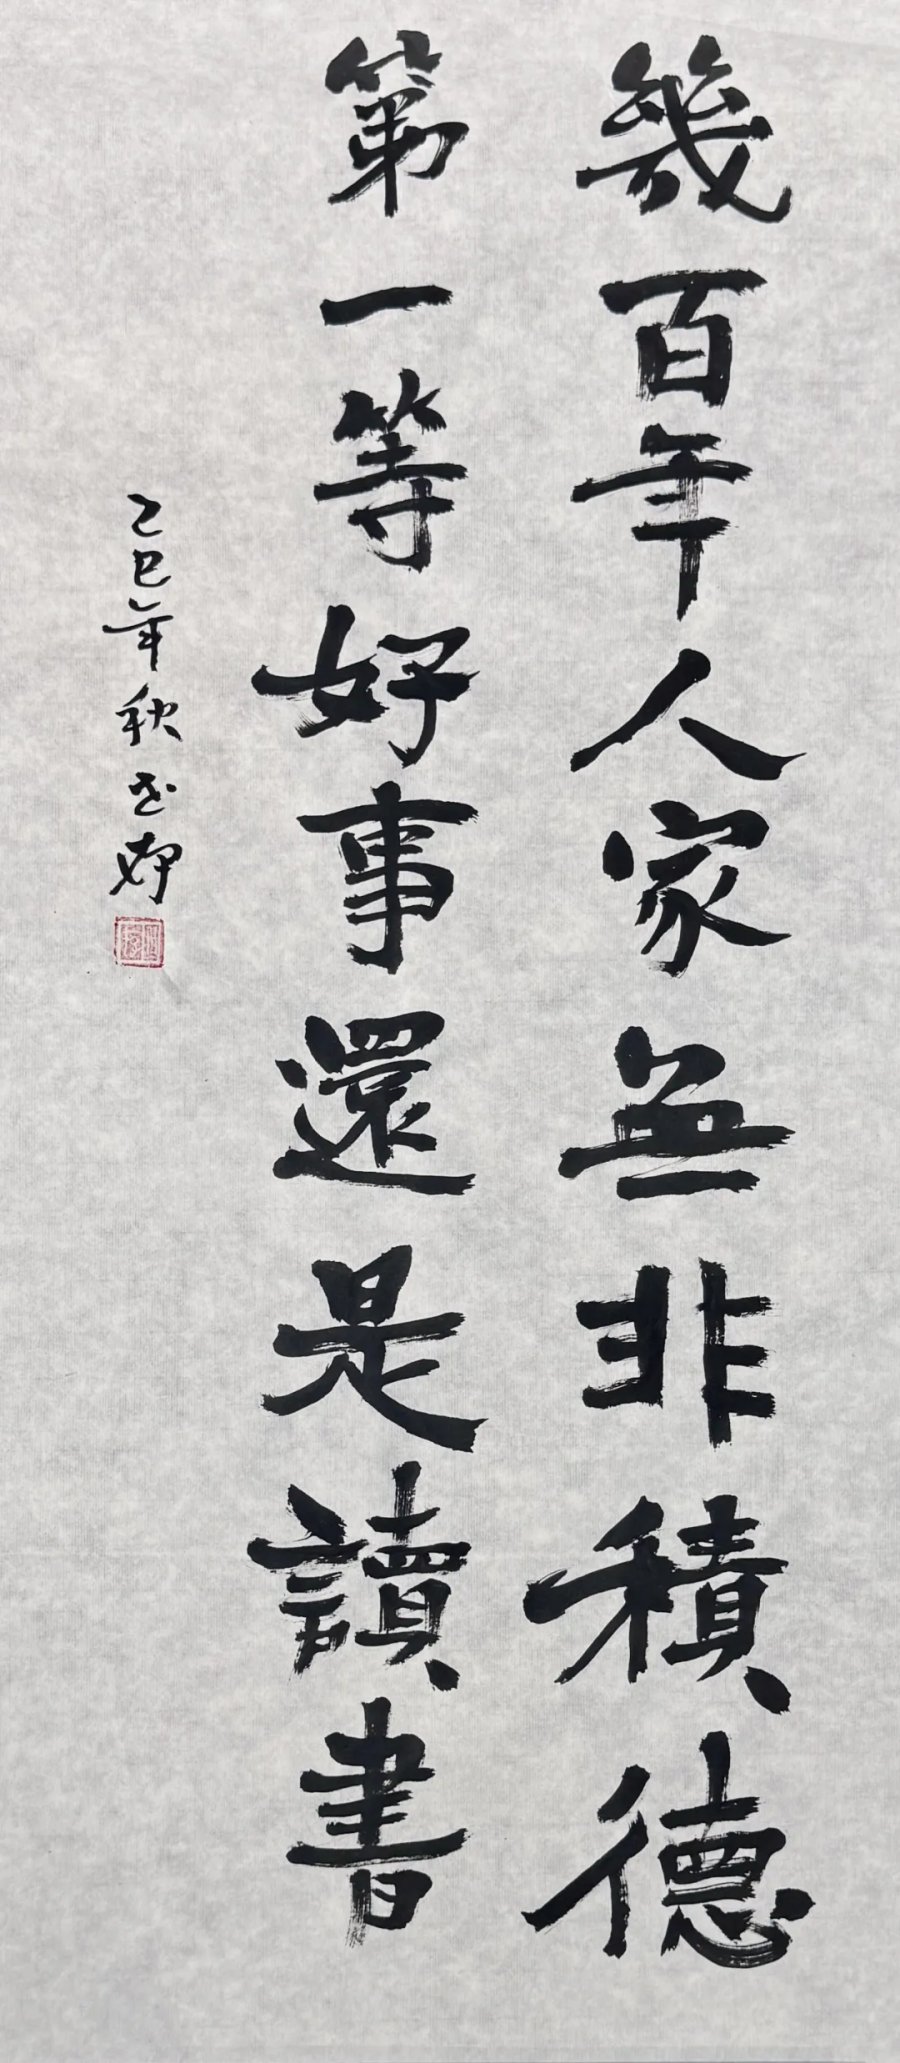 幾百年人家無非積德
第一等好事還是讀書
乙巳年秋